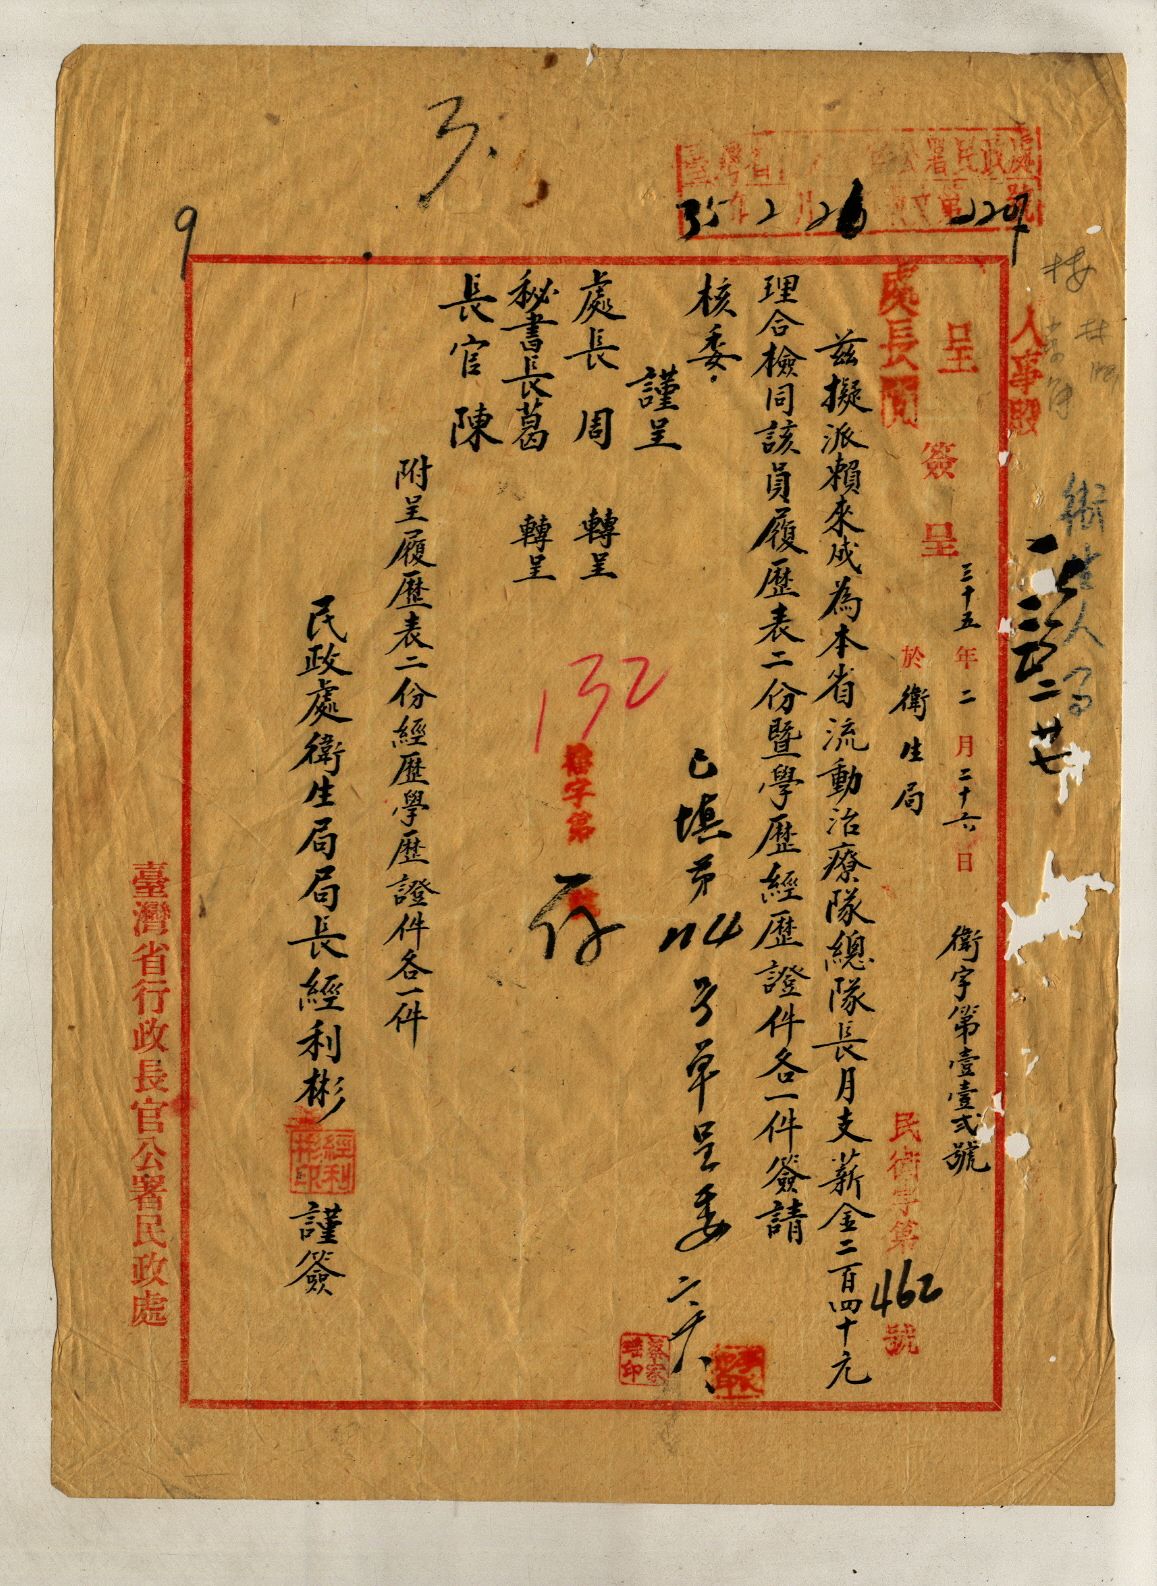 臺灣省 公署民政處
35年2月26 收文第 229號
人事
衛生人
呈
處長閱
簽呈 三十五年二月二十六日 衛字第壹壹弍號
於衛生局 民衛字第462號
茲擬派賴來成為本省流動治療隊總隊長月支薪金二百四十元
理合檢同該員履歷表二份暨學歷經歷證件各一件簽請
核委
謹呈
處長周 轉呈
秘書長葛 轉呈
長官陳
附呈履歷表二份經歷學歷證件各一件
民政處衛生局局長經利彬 謹簽
經利彬印
已填第114号單呈委
132
字第
存
臺灣省行政長官公署民政處
9